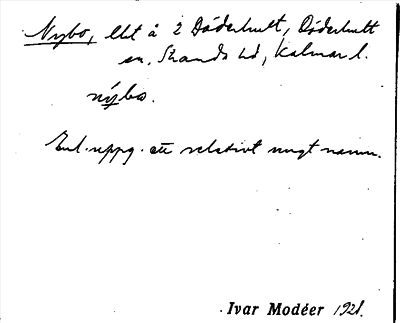 Nybo, lht å 2 Döderhult, Döderhult
sn, Stranda hd, Kalmar l.
nýbo.
Enl. uppg. ett relativt ungt namn.
Ivar Modéer 1921.